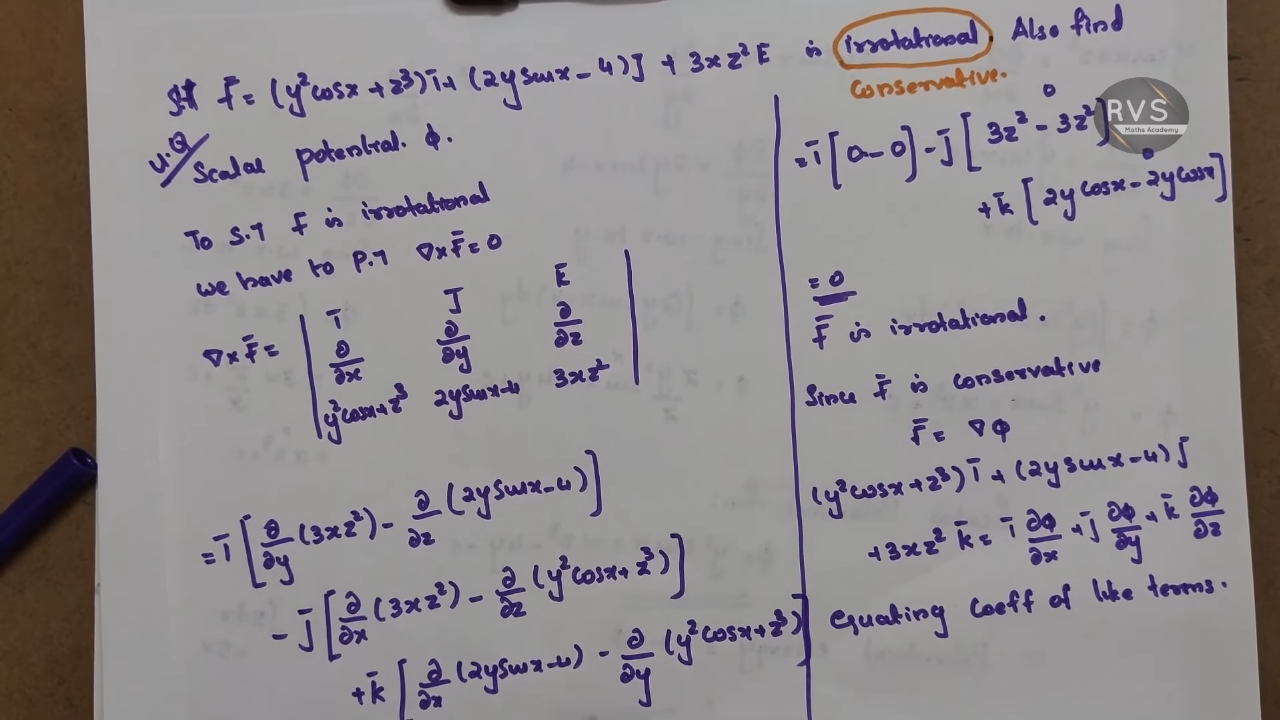 S.T F̄ = (y²cosx + z³)ī + (2ysinx - 4)j̄ + 3xz² k̄ is irrotational. Also find
conservative.
U.Q Scalar potential. φ.
To S.T F̄ is irrotational
we have to P.T ∇×F̄ = 0
∇×F̄ = | ī j̄ k̄
∂/∂x ∂/∂y ∂/∂z
y²cosx+z³ 2ysinx-4 3xz² |
= ī [∂/∂y (3xz²) - ∂/∂z (2ysinx-4)]
- j̄ [∂/∂x (3xz²) - ∂/∂z (y²cosx+z³)]
+ k̄ [∂/∂x (2ysinx-4) - ∂/∂y (y²cosx+z³)]
= ī [0-0] - j̄ [3z² - 3z²] 0
+ k̄ [2ycosx - 2ycosx] 0
= 0
F̄ is irrotational.
Since F̄ is conservative
F̄ = ∇φ
(y²cosx+z³) ī + (2ysinx-4) j̄
+ 3xz² k̄ = ī ∂φ/∂x + j̄ ∂φ/∂y + k̄ ∂φ/∂z
equating coeff of like terms.
RVS
Maths Academy